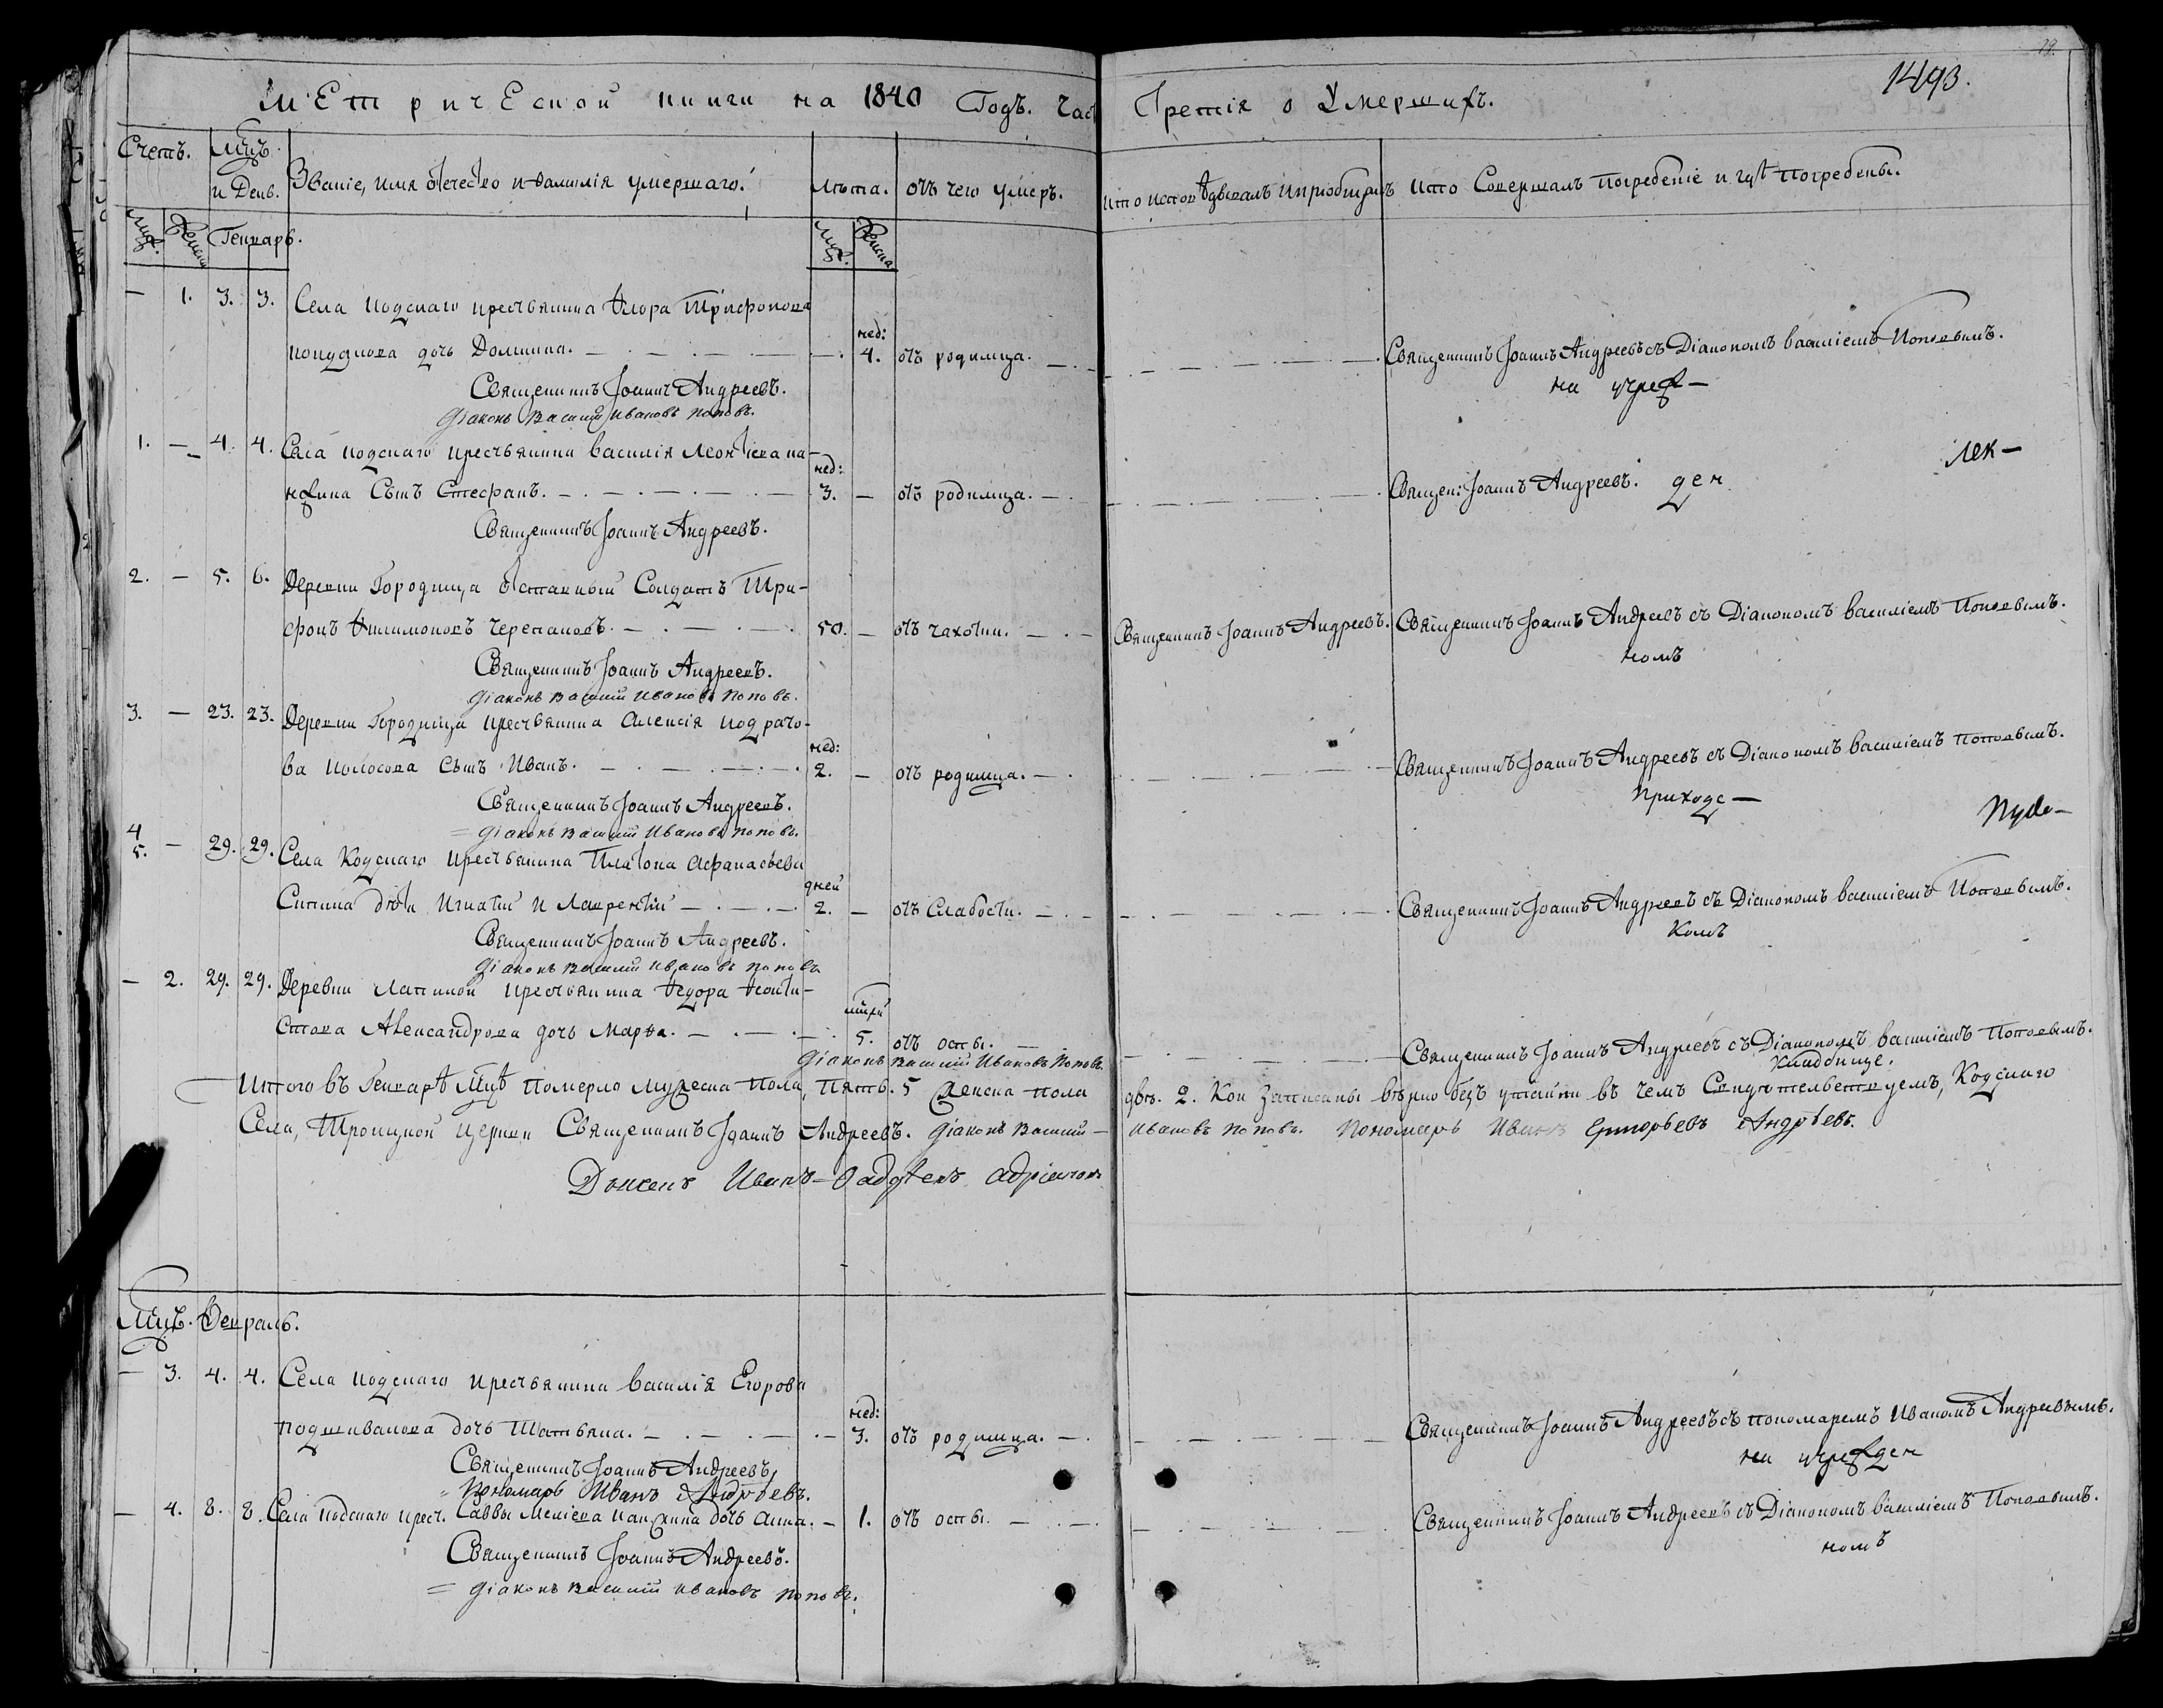 19.
1493.
Метрической книги на 1840 Годъ. Часть Третія о Умершихъ.
Счетъ. Мцъ и День. Званіе, имя отечество и фамилія умершаго. Лѣта. отъ чего умеръ. Кто исповѣдывалъ и пріобщалъ Кто Совершалъ Погребеніе и гдѣ Погребены.
Генварь.
— 1. 3. 3. Села Кодскаго крестьянина Флора Трифонова
дочь Домнина. — нед: 4. отъ родимца. — Священникъ Іоаннъ Андреевъ съ Діакономъ василіемъ Поповымъ.
на
Священникъ Іоаннъ Андреевъ.
діаконъ Василій Ивановъ Поповъ.
1. — 4. 4. Села Кодскаго крестьянина василія Леонтіева
Сынъ Стефанъ. — нед: 3. — отъ родимца. — Священ: Іоаннъ Андреевъ. ден
Лек—
Священникъ Іоаннъ Андреевъ.
2. — 5. 6. Деревни Городища отставный Солдатъ Три-
фонъ Филимоновъ Черепановъ. — 50. — отъ чахотки. — Священникъ Іоаннъ Андреевъ. Священникъ Іоаннъ Андреевъ съ Діакономъ василіемъ Поповымъ.
номъ
Священникъ Іоаннъ Андреевъ.
діаконъ Василій Ивановъ Поповъ.
3. — 23. 23. Деревни Городища крестьянина Алексія Кодрато-
ва Колосова Сынъ Иванъ. — нед: 2. — отъ родимца. — Священникъ Іоаннъ Андреевъ съ Діакономъ василіемъ Поповымъ.
Приходс—
Священникъ Іоаннъ Андреевъ.
діаконъ Василій Ивановъ Поповъ.
4 5. — 29. 29. Села Кодскаго крестьянина Платона Афанасьева
дѣти Игнатій и Лаврентій — дней 2. — отъ Слабости. — Священникъ Іоаннъ Андреевъ съ Діакономъ василіемъ Поповымъ.
Комъ
Священникъ Іоаннъ Андреевъ.
діаконъ Василій Ивановъ Поповъ
— 2. 29. 29. Деревни Лапиной крестьянина Ѳедора Ѳеокти-
стова Александрова дочь Марѳа. — 5. отъ оспы. — Священникъ Іоаннъ Андреевъ съ Діакономъ василіемъ Поповымъ.
Кладбище.
діаконъ Василій Ивановъ Поповъ.
Итого въ Генварѣ Мцѣ Померло Мужеска Пола, Пять. 5 Женска пола двѣ. 2. Кои Записаны вѣрно безъ утайки въ чемъ Свидѣтельствуемъ, Кодскаго
Села, Троицкой Церкви Священникъ Іоаннъ Андреевъ. діаконъ Василій— Ивановъ Поповъ. Пономарь Иванъ Григорьевъ Андрѣевъ.
Дьячекъ Иванъ
Мцъ. Февраль.
— 3. 4. 4. Села Кодскаго крестьянина Василія Егорова
Подшивалова дочь Татьяна. — нед: 3. отъ родимца. — Священникъ Іоаннъ Андреевъ съ пономаремъ Иваномъ Андреевымъ.
на
Священникъ Іоаннъ Андреевъ,
Пономарь Иванъ Андрѣевъ.
— 4. 8. 8. Села Кодскаго крест. Саввы дочь Анна. — 1. отъ оспы. — Священникъ Іоаннъ Андреевъ съ Діакономъ василіемъ Поповымъ.
номъ
Священникъ Іоаннъ Андреевъ.
діаконъ Василій Ивановъ Поповъ.